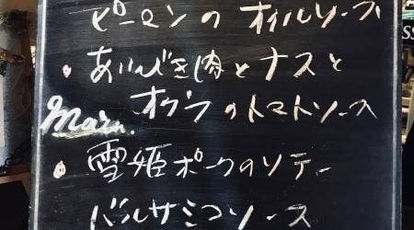 ピーマンの オイルソース
・あいびき肉とナスと
オクラのトマトソース
Main.
・雪姫ポークのソテー
バルサミコソース